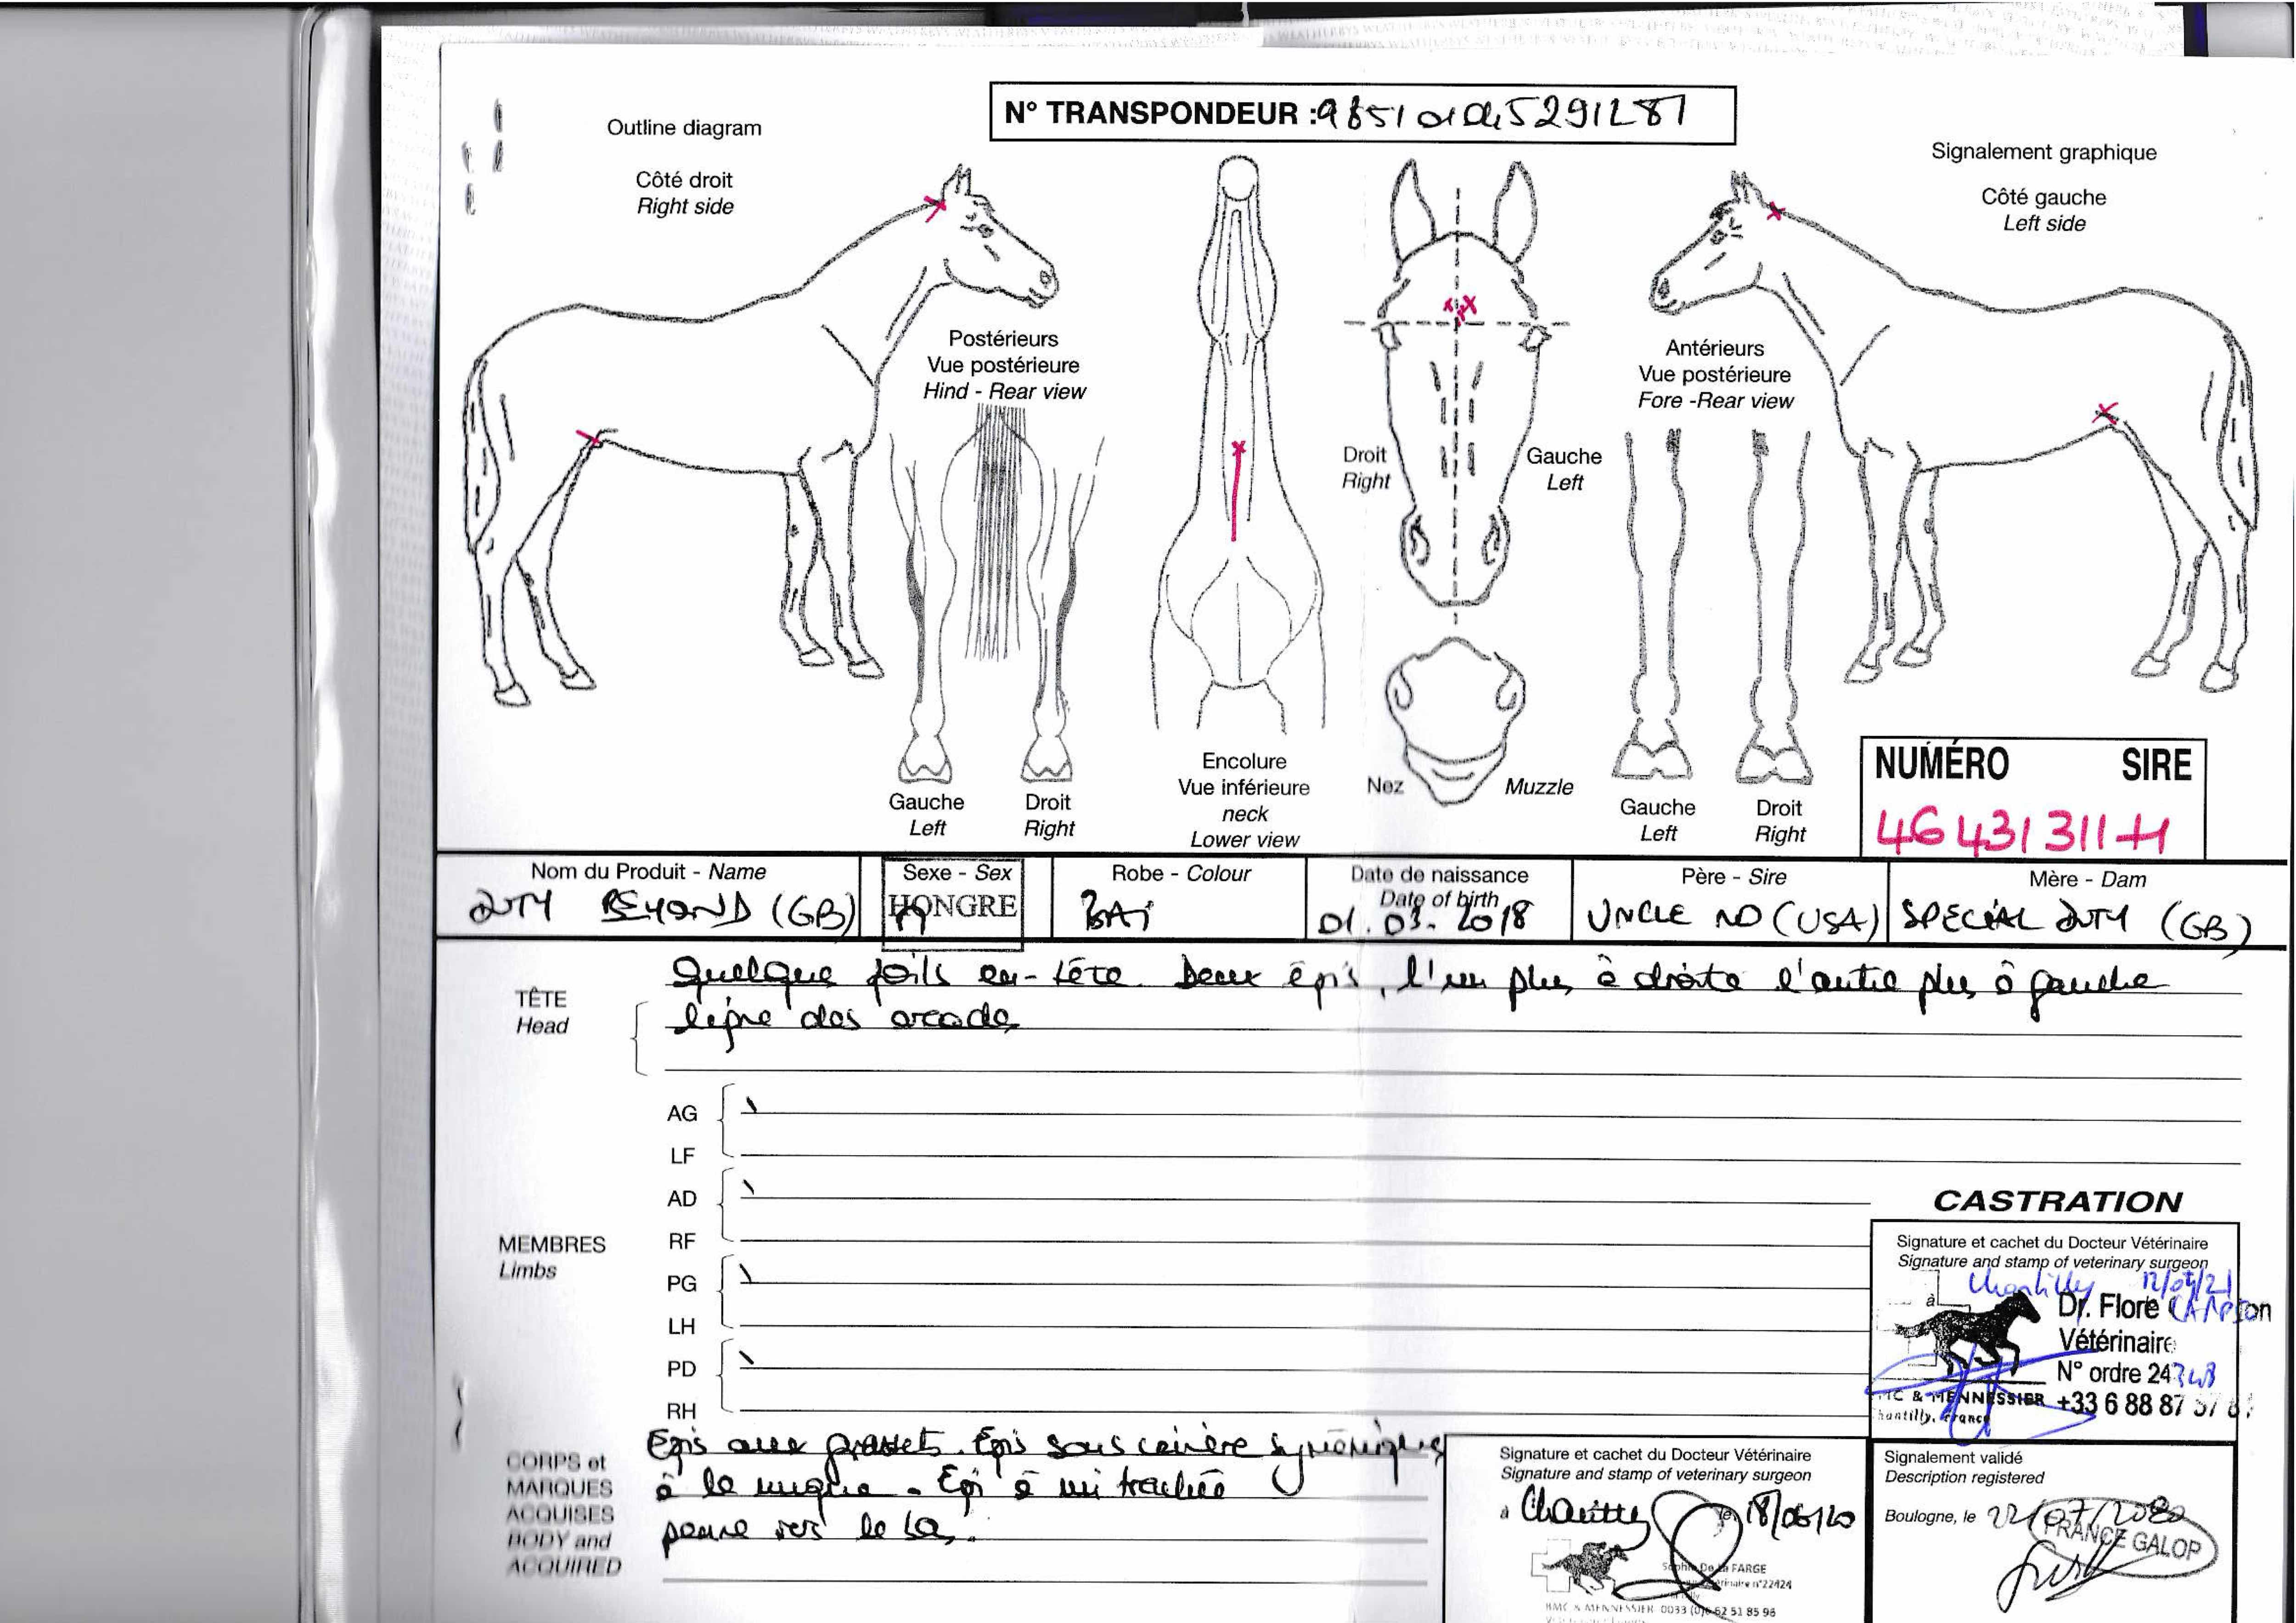 N° TRANSPONDEUR :
Outline diagram
Signalement graphique
Côté droit
Right side
Côté gauche
Left side
Postérieurs
Vue postérieure
Hind - Rear view
Antérieurs
Vue postérieure
Fore -Rear view
Droit
Right
Gauche
Left
Gauche
Left
Droit
Right
Encolure
Vue inférieure
neck
Lower view
Nez
Muzzle
Gauche
Left
Droit
Right
NUMÉRO SIRE
46431311H
Nom du Produit - Name
DUTY BEYOND (GB)
Sexe - Sex
HONGRE
M
Robe - Colour
BAI
Date de naissance
Date of birth
01.03.2018
Père - Sire
UNCLE MO (USA)
Mère - Dam
SPECIAL DUTY (GB)
TÊTE
Head
Quelque poils en-tête. Deux épis, l'un plus à droite l'autre plus à gauche
ligne des arcades
MEMBRES
Limbs
AG
LF
AD
RF
PG
LH
PD
RH
CORPS et
MARQUES
ACQUISES
BODY and
ACQUIRED
Epis aux grassets. Epis sous crinère symétriques
à la nuque - Epi à mi trachée
penné vers le bas.
CASTRATION
Signature et cachet du Docteur Vétérinaire
Signature and stamp of veterinary surgeon
à Chantilly 12/07/21
Dr. Flore
Vétérinaire
N° ordre 24348
& MENNESSIER +33 6 88 87
Chantilly, France
Signature et cachet du Docteur Vétérinaire
Signature and stamp of veterinary surgeon
à Chantilly le 18/06/20
Sophie De la FARGE
n°22424
BMC & MENNESSIER 0033 (0)6 62 51 85 96
Signalement validé
Description registered
Boulogne, le 22/07/2020
FRANCE GALOP